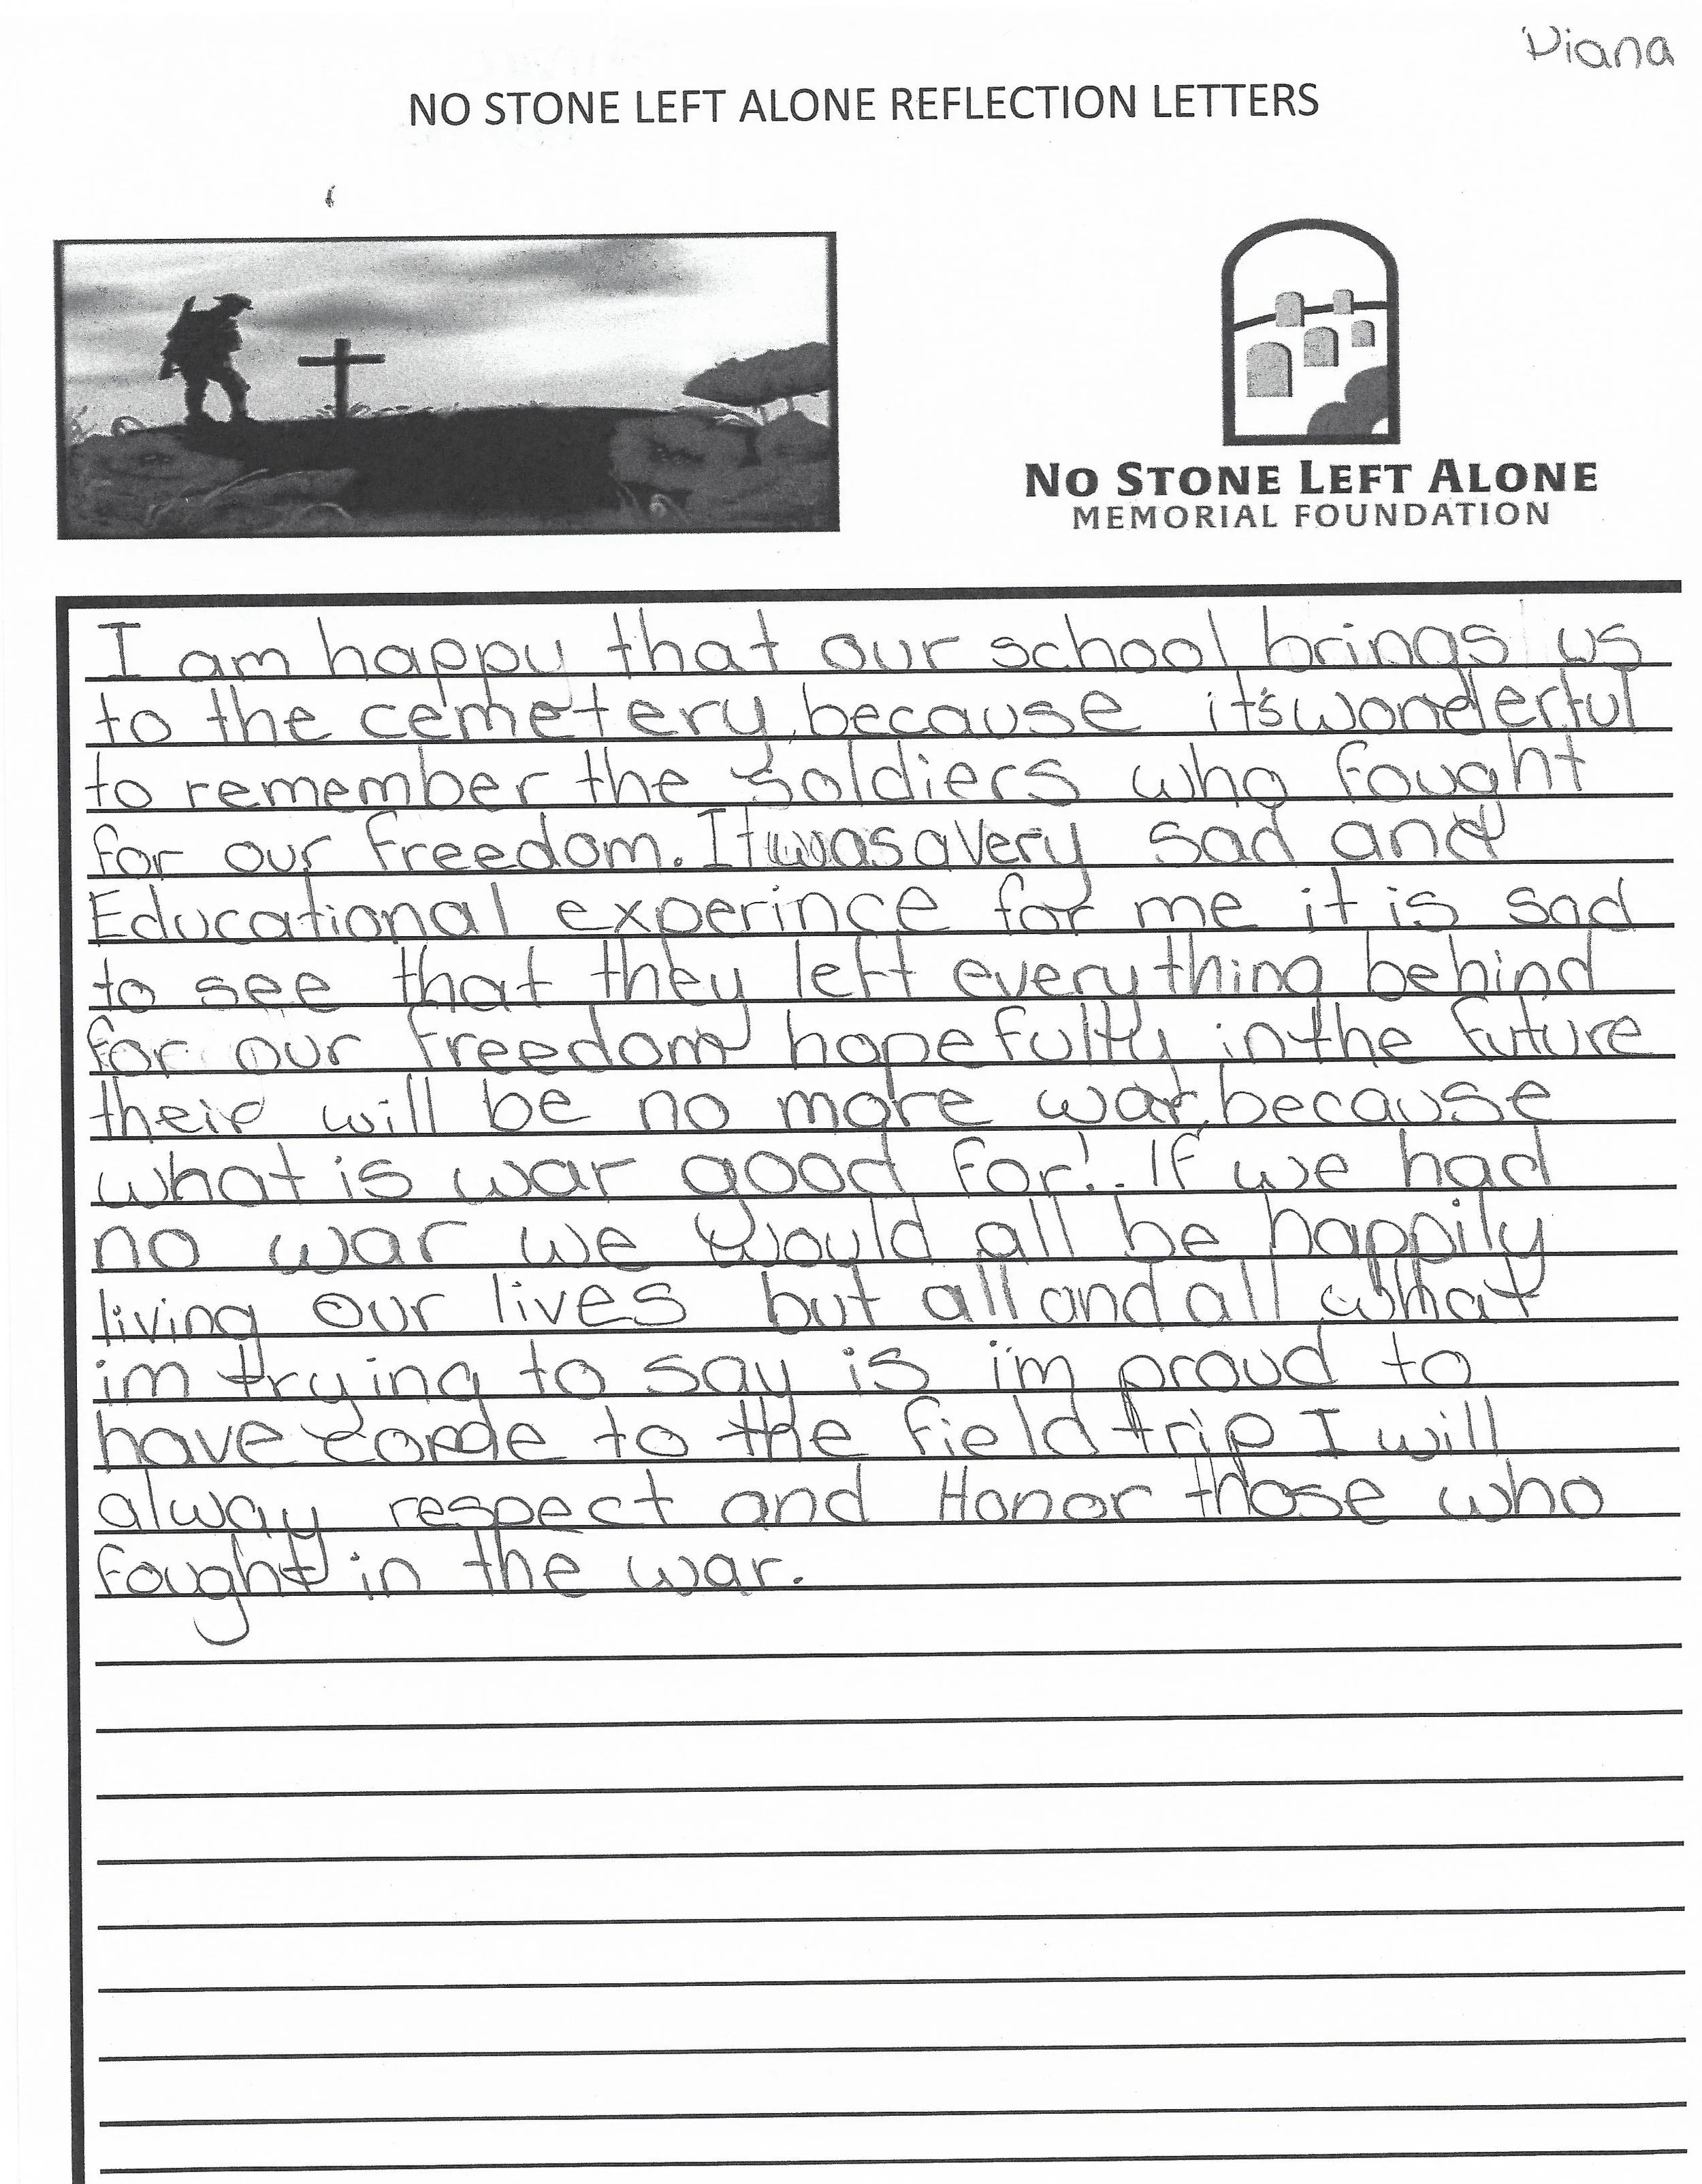 Diana
NO STONE LEFT ALONE REFLECTION LETTERS
NO STONE LEFT ALONE
MEMORIAL FOUNDATION
I am happy that our school brings us
to the cemetery, because it's wonderful
to remember the soldiers who fought
for our freedom. It was a very sad and
Educational experince for me it is sad
to see that they left everything behind
for our freedom hopefully in the future
their will be no more war, because
what is war good for!. If we had
no war we would all be happily
living our lives but all and all what
im trying to say is i'm proud to
have come to the field trip I will
alway respect and Honor those who
fought in the war.